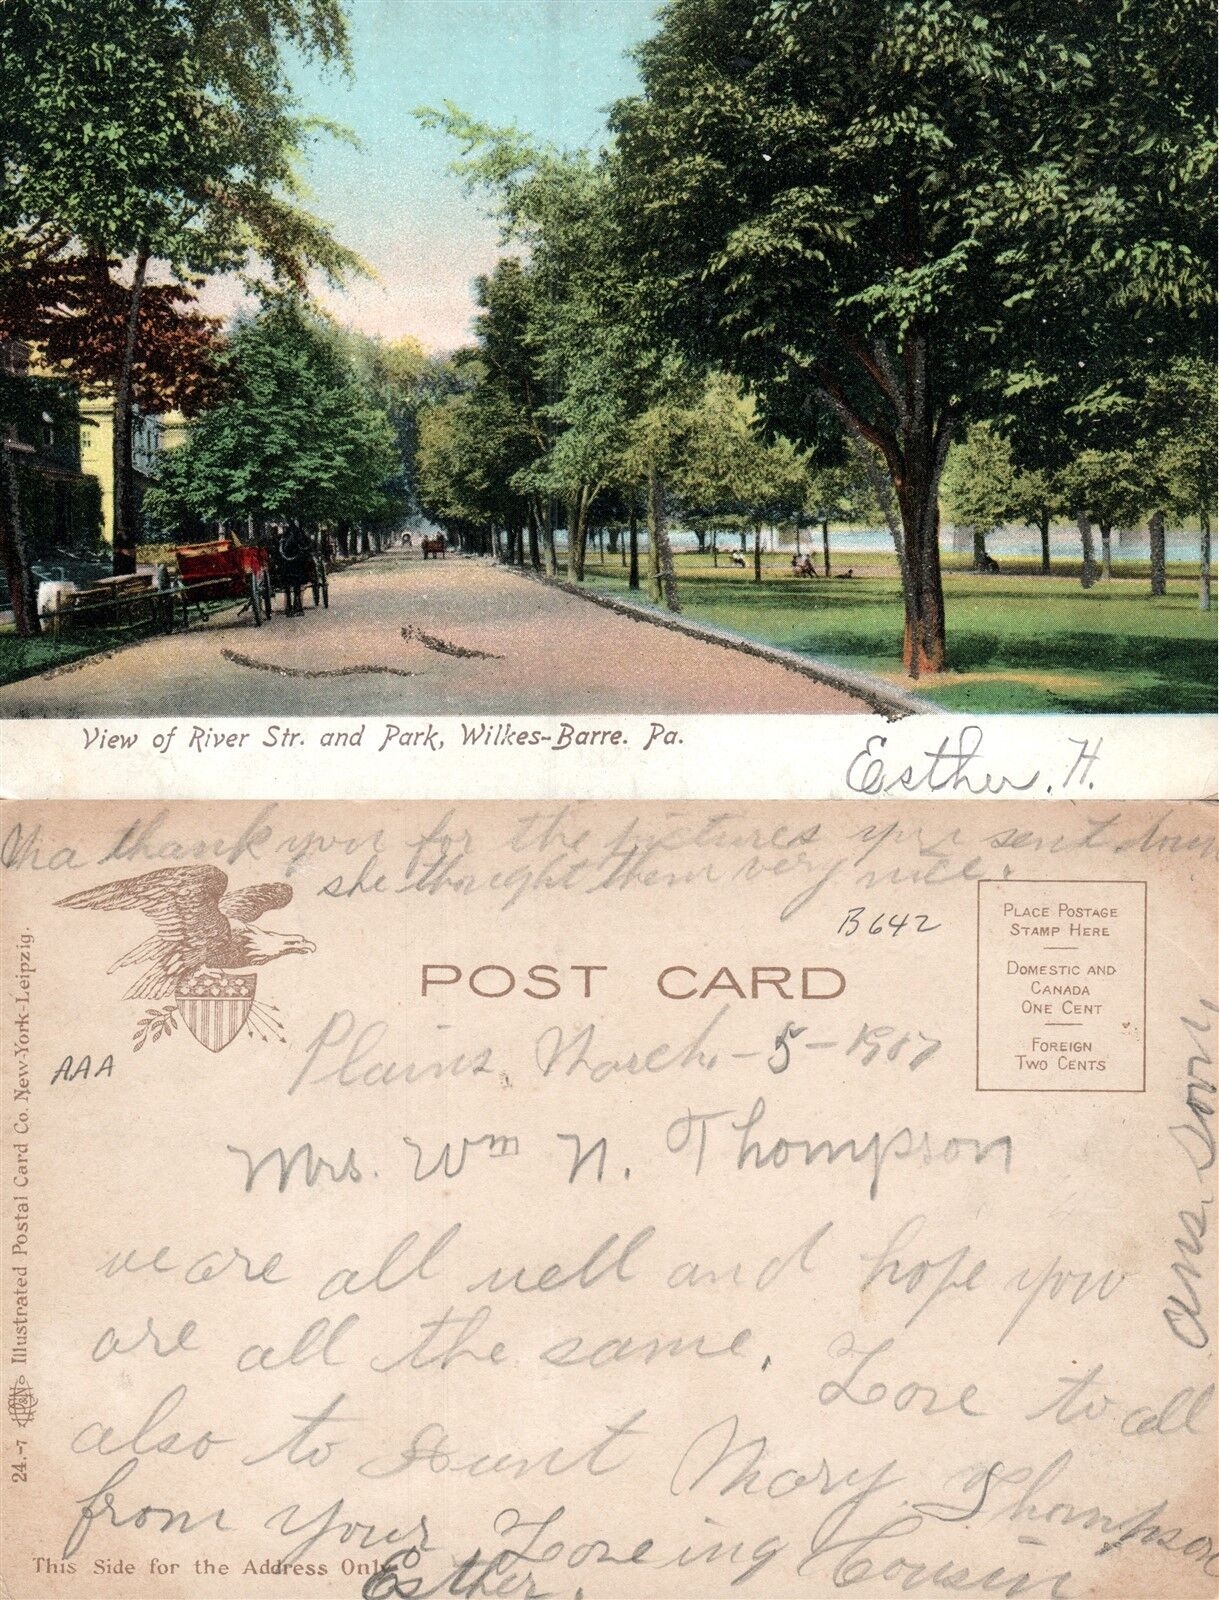 View of River Str. and Park, Wilkes-Barre. Pa.
Esther. H.
Ma thank you for the pictures you sent down
she thought them very nice.
B642
PLACE POSTAGE
STAMP HERE
DOMESTIC AND
CANADA
ONE CENT
FOREIGN
TWO CENTS
POST CARD
AAA
Plains, March, -5-1907
Mrs. Wm N. Thompson
we are all well and hope you
are all the same. Love to all
also to Aunt Mary Thompson
from your Loveing Cousin
Esther.
This Side for the Address Only
24.-7 Illustrated Postal Card Co. New-York-Leipzig.
ans. sory